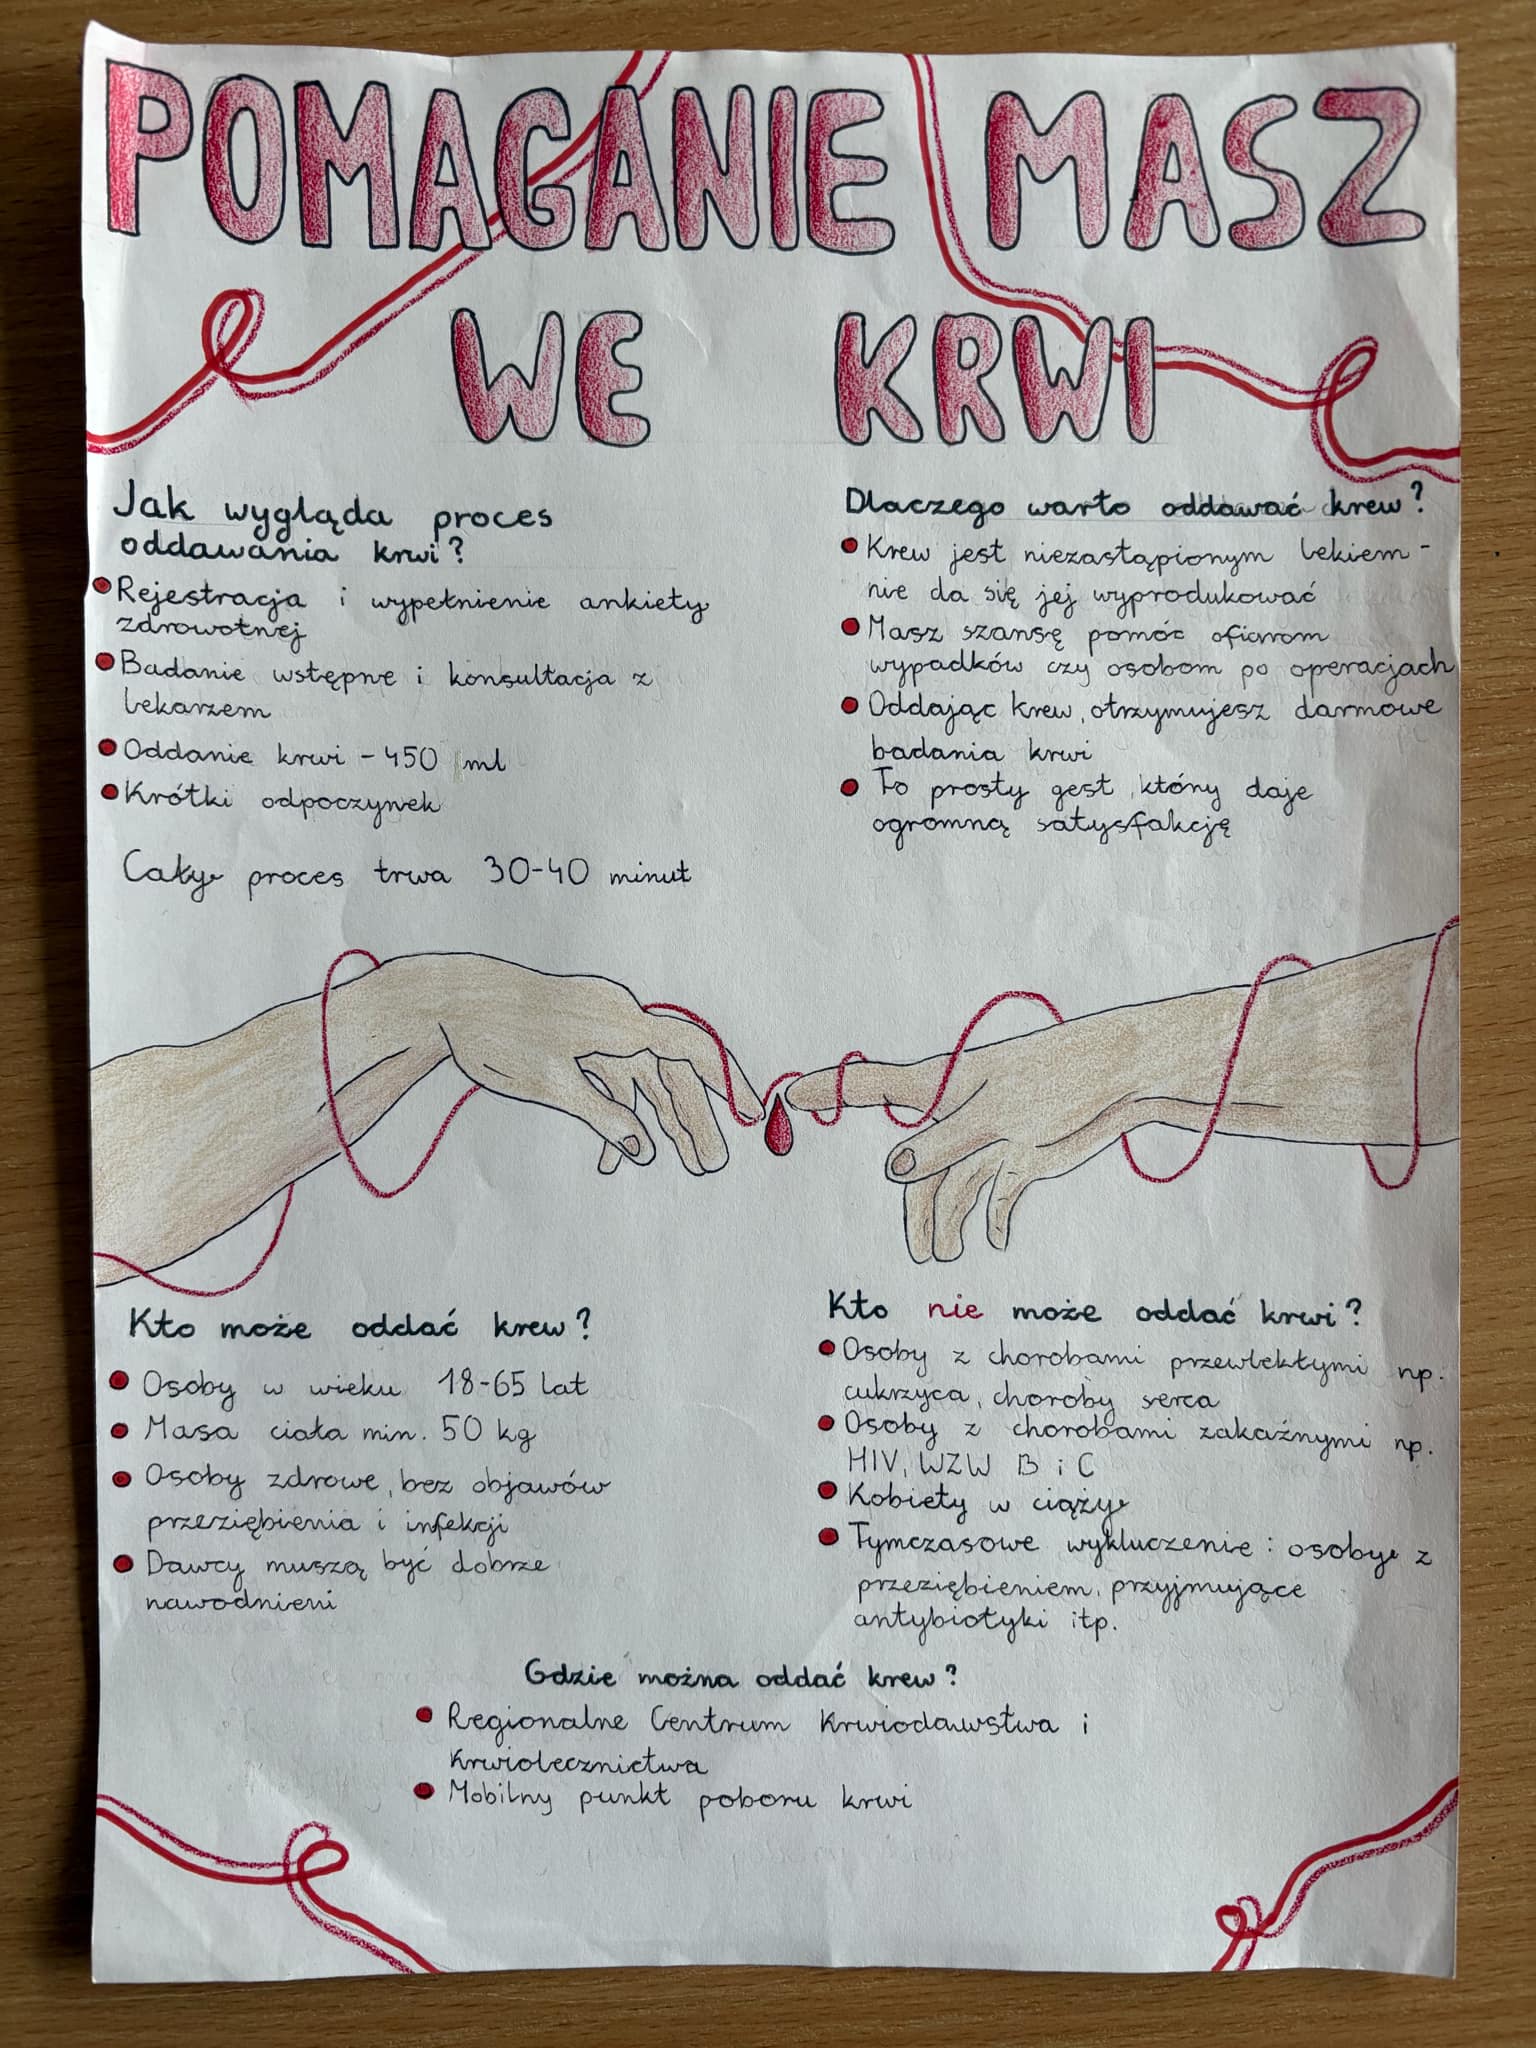 POMAGANIE MASZ
WE KRWI
Jak wygląda proces
oddawania krwi?
Rejestracja i wypełnienie ankiety
zdrowotnej
Badanie wstępne i konsultacja z
lekarzem
Oddanie krwi - 450 ml
Krótki odpoczynek
Cały proces trwa 30-40 minut
Dlaczego warto oddawać krew?
Krew jest niezastąpionym lekiem -
nie da się jej wyprodukować
Masz szansę pomóc ofiarom
wypadków czy osobom po operacjach
Oddając krew, otrzymujesz darmowe
badania krwi
To prosty gest, który daje
ogromną satysfakcję
Kto może oddać krew?
Osoby w wieku 18-65 lat
Masa ciała min. 50 kg
Osoby zdrowe, bez objawów
przeziębienia i infekcji
Dawcy muszą być dobrze
nawodnieni
Kto nie może oddać krwi?
Osoby z chorobami przewlekłymi np.
cukrzyca, choroby serca
Osoby z chorobami zakaźnymi np.
HIV, WZW B i C
Kobiety w ciąży
Tymczasowe wykluczenie: osoby z
przeziębieniem, przyjmujące
antybiotyki itp.
Gdzie można oddać krew?
Regionalne Centrum Krwiodawstwa i
Krwiolecznictwa
Mobilny punkt poboru krwi